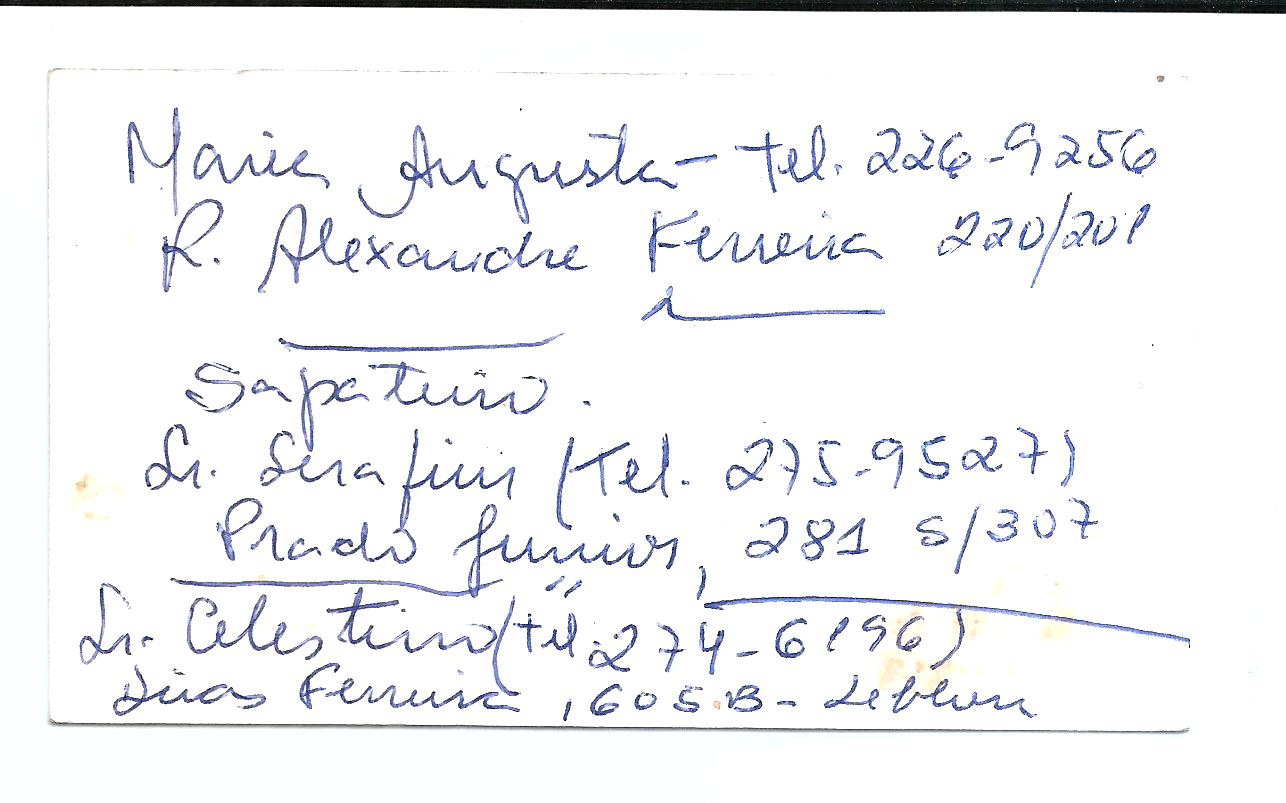 Maria Augusta - tel. 226-9256
R. Alexandre Ferreira 220/201
Sapateiro.
Sr. Serafim (Tel. 275-9527)
Prado Junior, 281 S/307
Sr. Celestino (tel. 274-6196)
Dias Ferreira, 605.B - Leblon